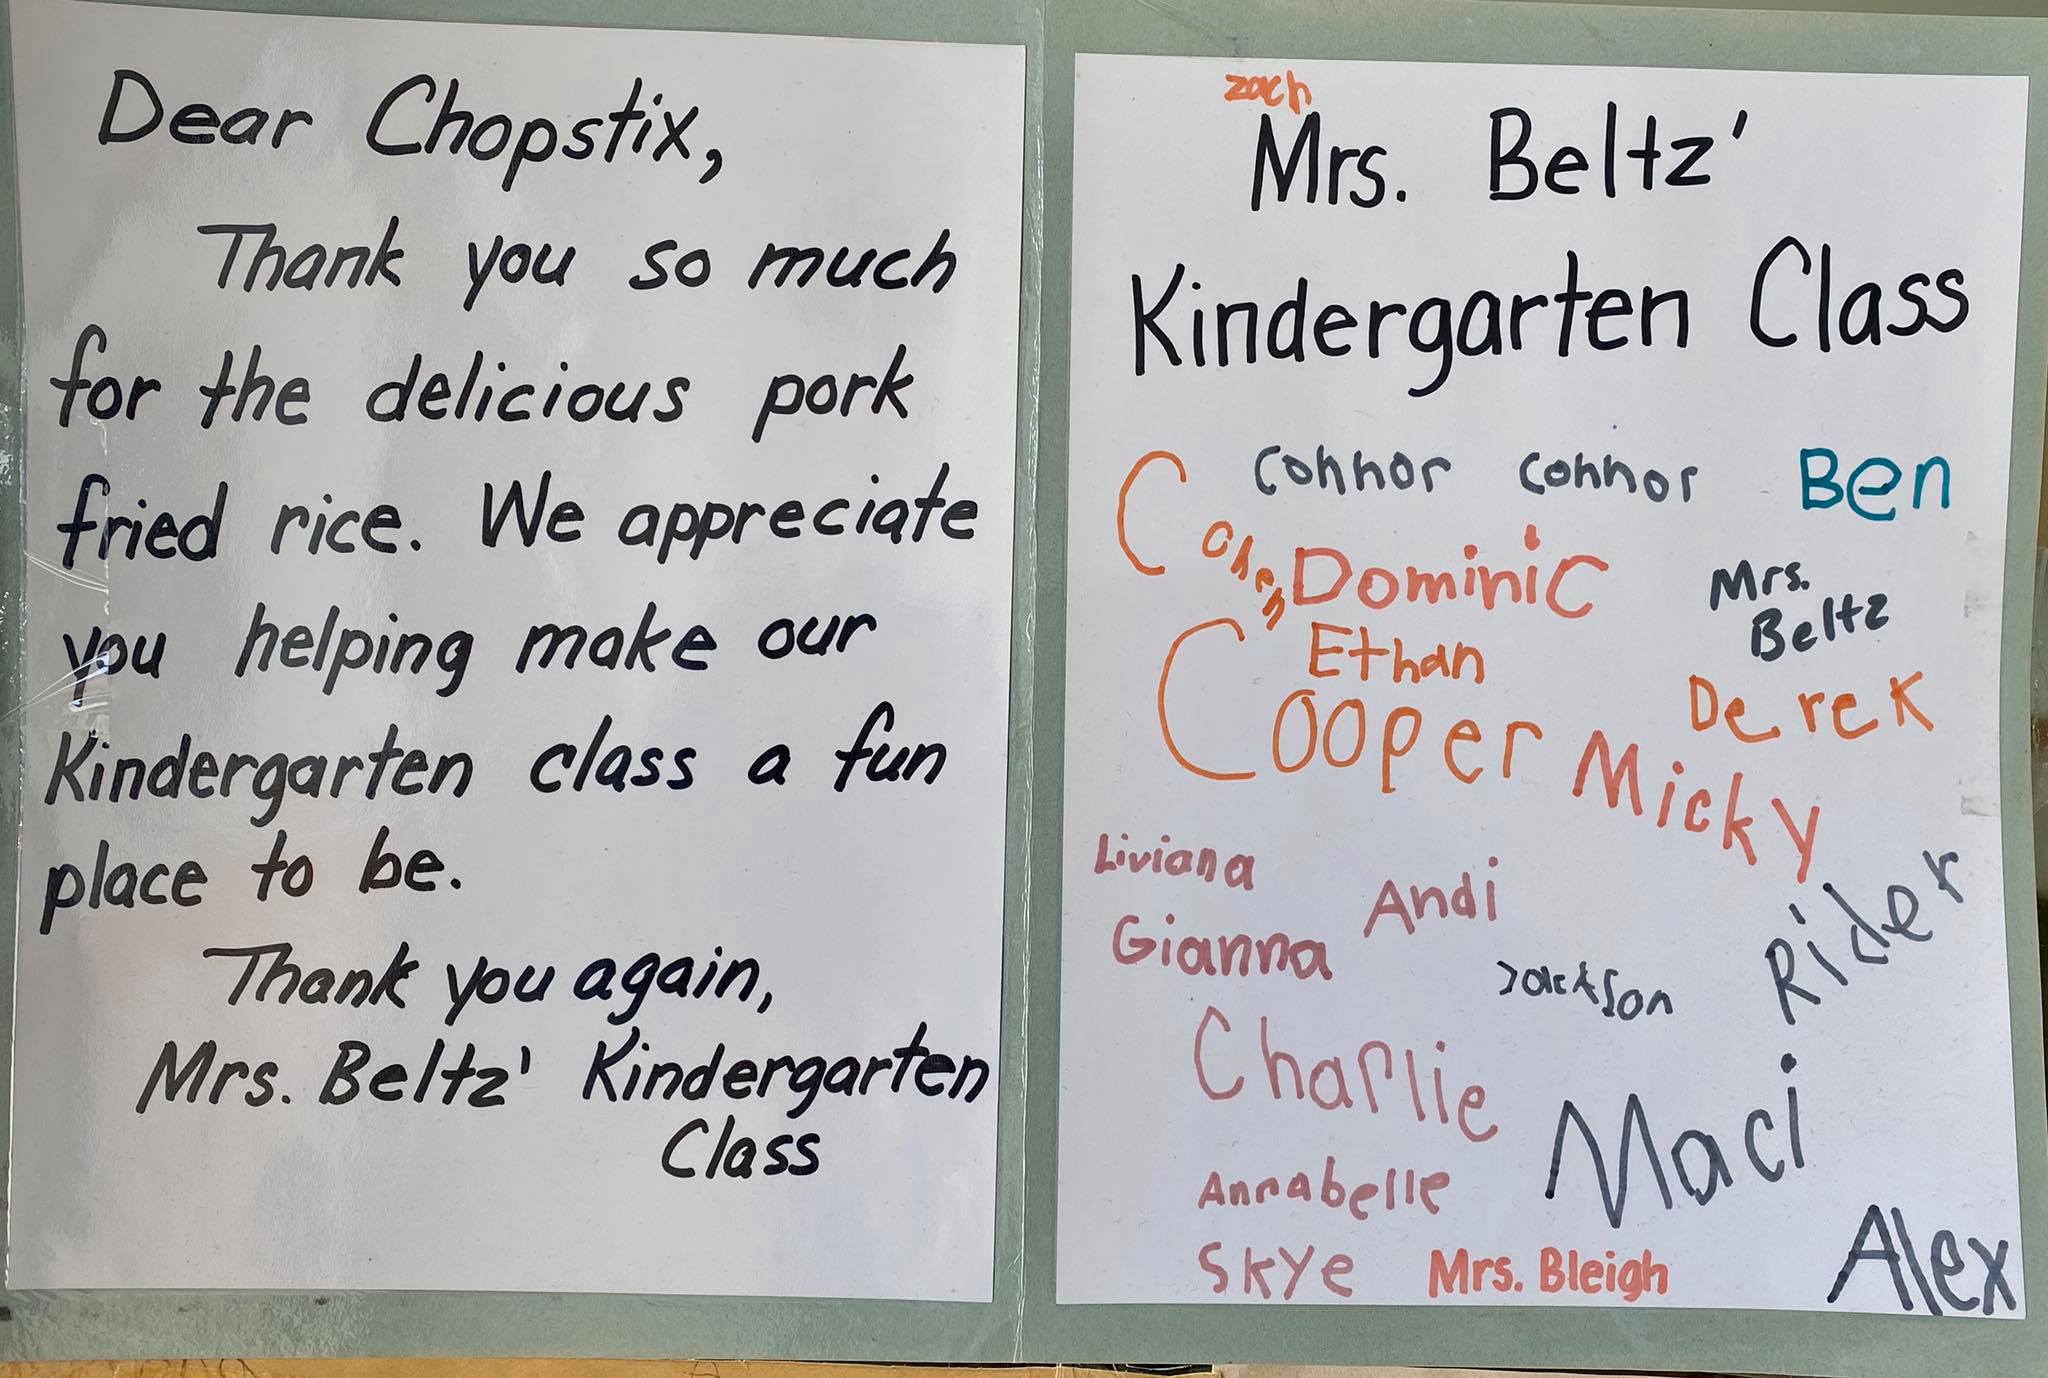 Dear Chopstix,
Thank you so much
for the delicious pork
fried rice. We appreciate
you helping make our
Kindergarten class a fun
place to be.
Thank you again,
Mrs. Beltz' Kindergarten
Class
zach
Mrs. Beltz'
Kindergarten Class
Connor Connor Ben
Cohen Dominic
Mrs.
Beltz
Ethan
Derek
Cooper Micky
Liviana
Andi
Rider
Gianna
Jackson
Charlie
Maci
Annabelle
Alex
Skye Mrs. Bleigh